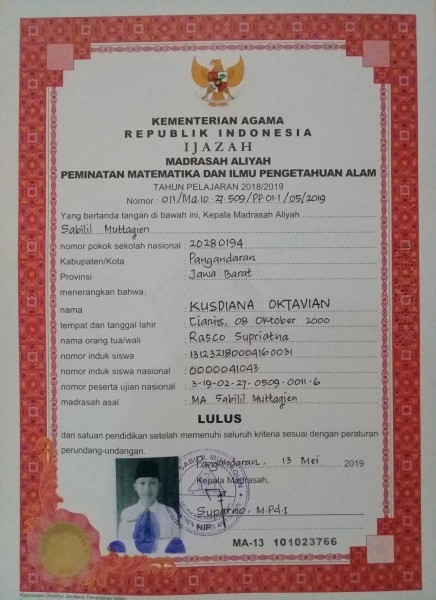 KEMENTERIAN AGAMA
REPUBLIK INDONESIA
IJAZAH
MADRASAH ALIYAH
PEMINATAN MATEMATIKA DAN ILMU PENGETAHUAN ALAM
TAHUN PELAJARAN 2018/2019
Nomor : 011/Ma.10.27.509/PP.01.1/05/2019
Yang bertanda tangan di bawah ini, Kepala Madrasah Aliyah
Sabilil Muttaqien
nomor pokok sekolah nasional : 20280194
Kabupaten/Kota : Pangandaran
Provinsi : Jawa Barat
menerangkan bahwa:
nama : KUSDIANA OKTAVIAN
tempat dan tanggal lahir : Ciamis, 08 Oktober 2000
nama orang tua/wali : Rasco Supriatna
nomor induk siswa : 131232180004160031
nomor induk siswa nasional : 0000041043
nomor peserta ujian nasional : 3-19-02-27-0509-0011-6
madrasah asal : MA. Sabilil Muttaqien
LULUS
dari satuan pendidikan setelah memenuhi seluruh kriteria sesuai dengan peraturan
perundang-undangan.
Pangandaran, 13 Mei 2019
Kepala Madrasah,
Suparno, M.Pd.I
NIP.
MA-13 101023766